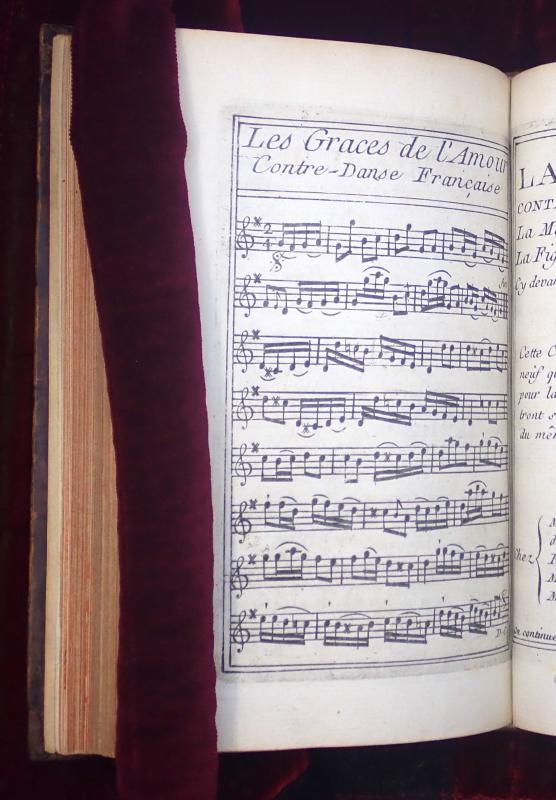 Les Graces de l'Amour
Contre-Danse Française
2
4
D.C.
LA
CONT
La M
La Fig
Cy devan
Cette C
neuf qu
pour la
tront s
du mêm
Chez
On continue